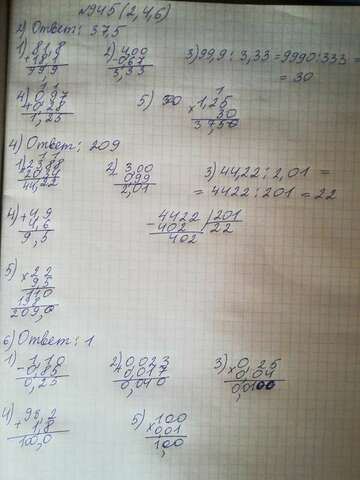 №945(2,4,6)
2) Ответ: 37,5
1) 81,8
+ 18,1
99,9
2) 4,00
- 0,67
3,33
3) 99,9 : 3,33 = 9990 : 333 =
= 30
4) 0,97
+ 0,28
1,25
5)
× 1,25
30
37,50
4) Ответ: 209
1) 23,88
+ 20,34
44,22
2) 3,00
0,99
2,01
3) 44,22 : 2,01 =
= 4422 : 201 = 22
4) + 4,9
4,6
9,5
- 4422 | 201
402 | 22
402
5)
× 22
9,5
110
198
209,0
6) Ответ: 1
1) 1,10
- 0,85
0,25
2) 0,023
+ 0,017
0,040
3) 0,25
× 0,04
0,0100
4) 98,2
+ 1,8
100,0
5) 100
× 0,01
1,00